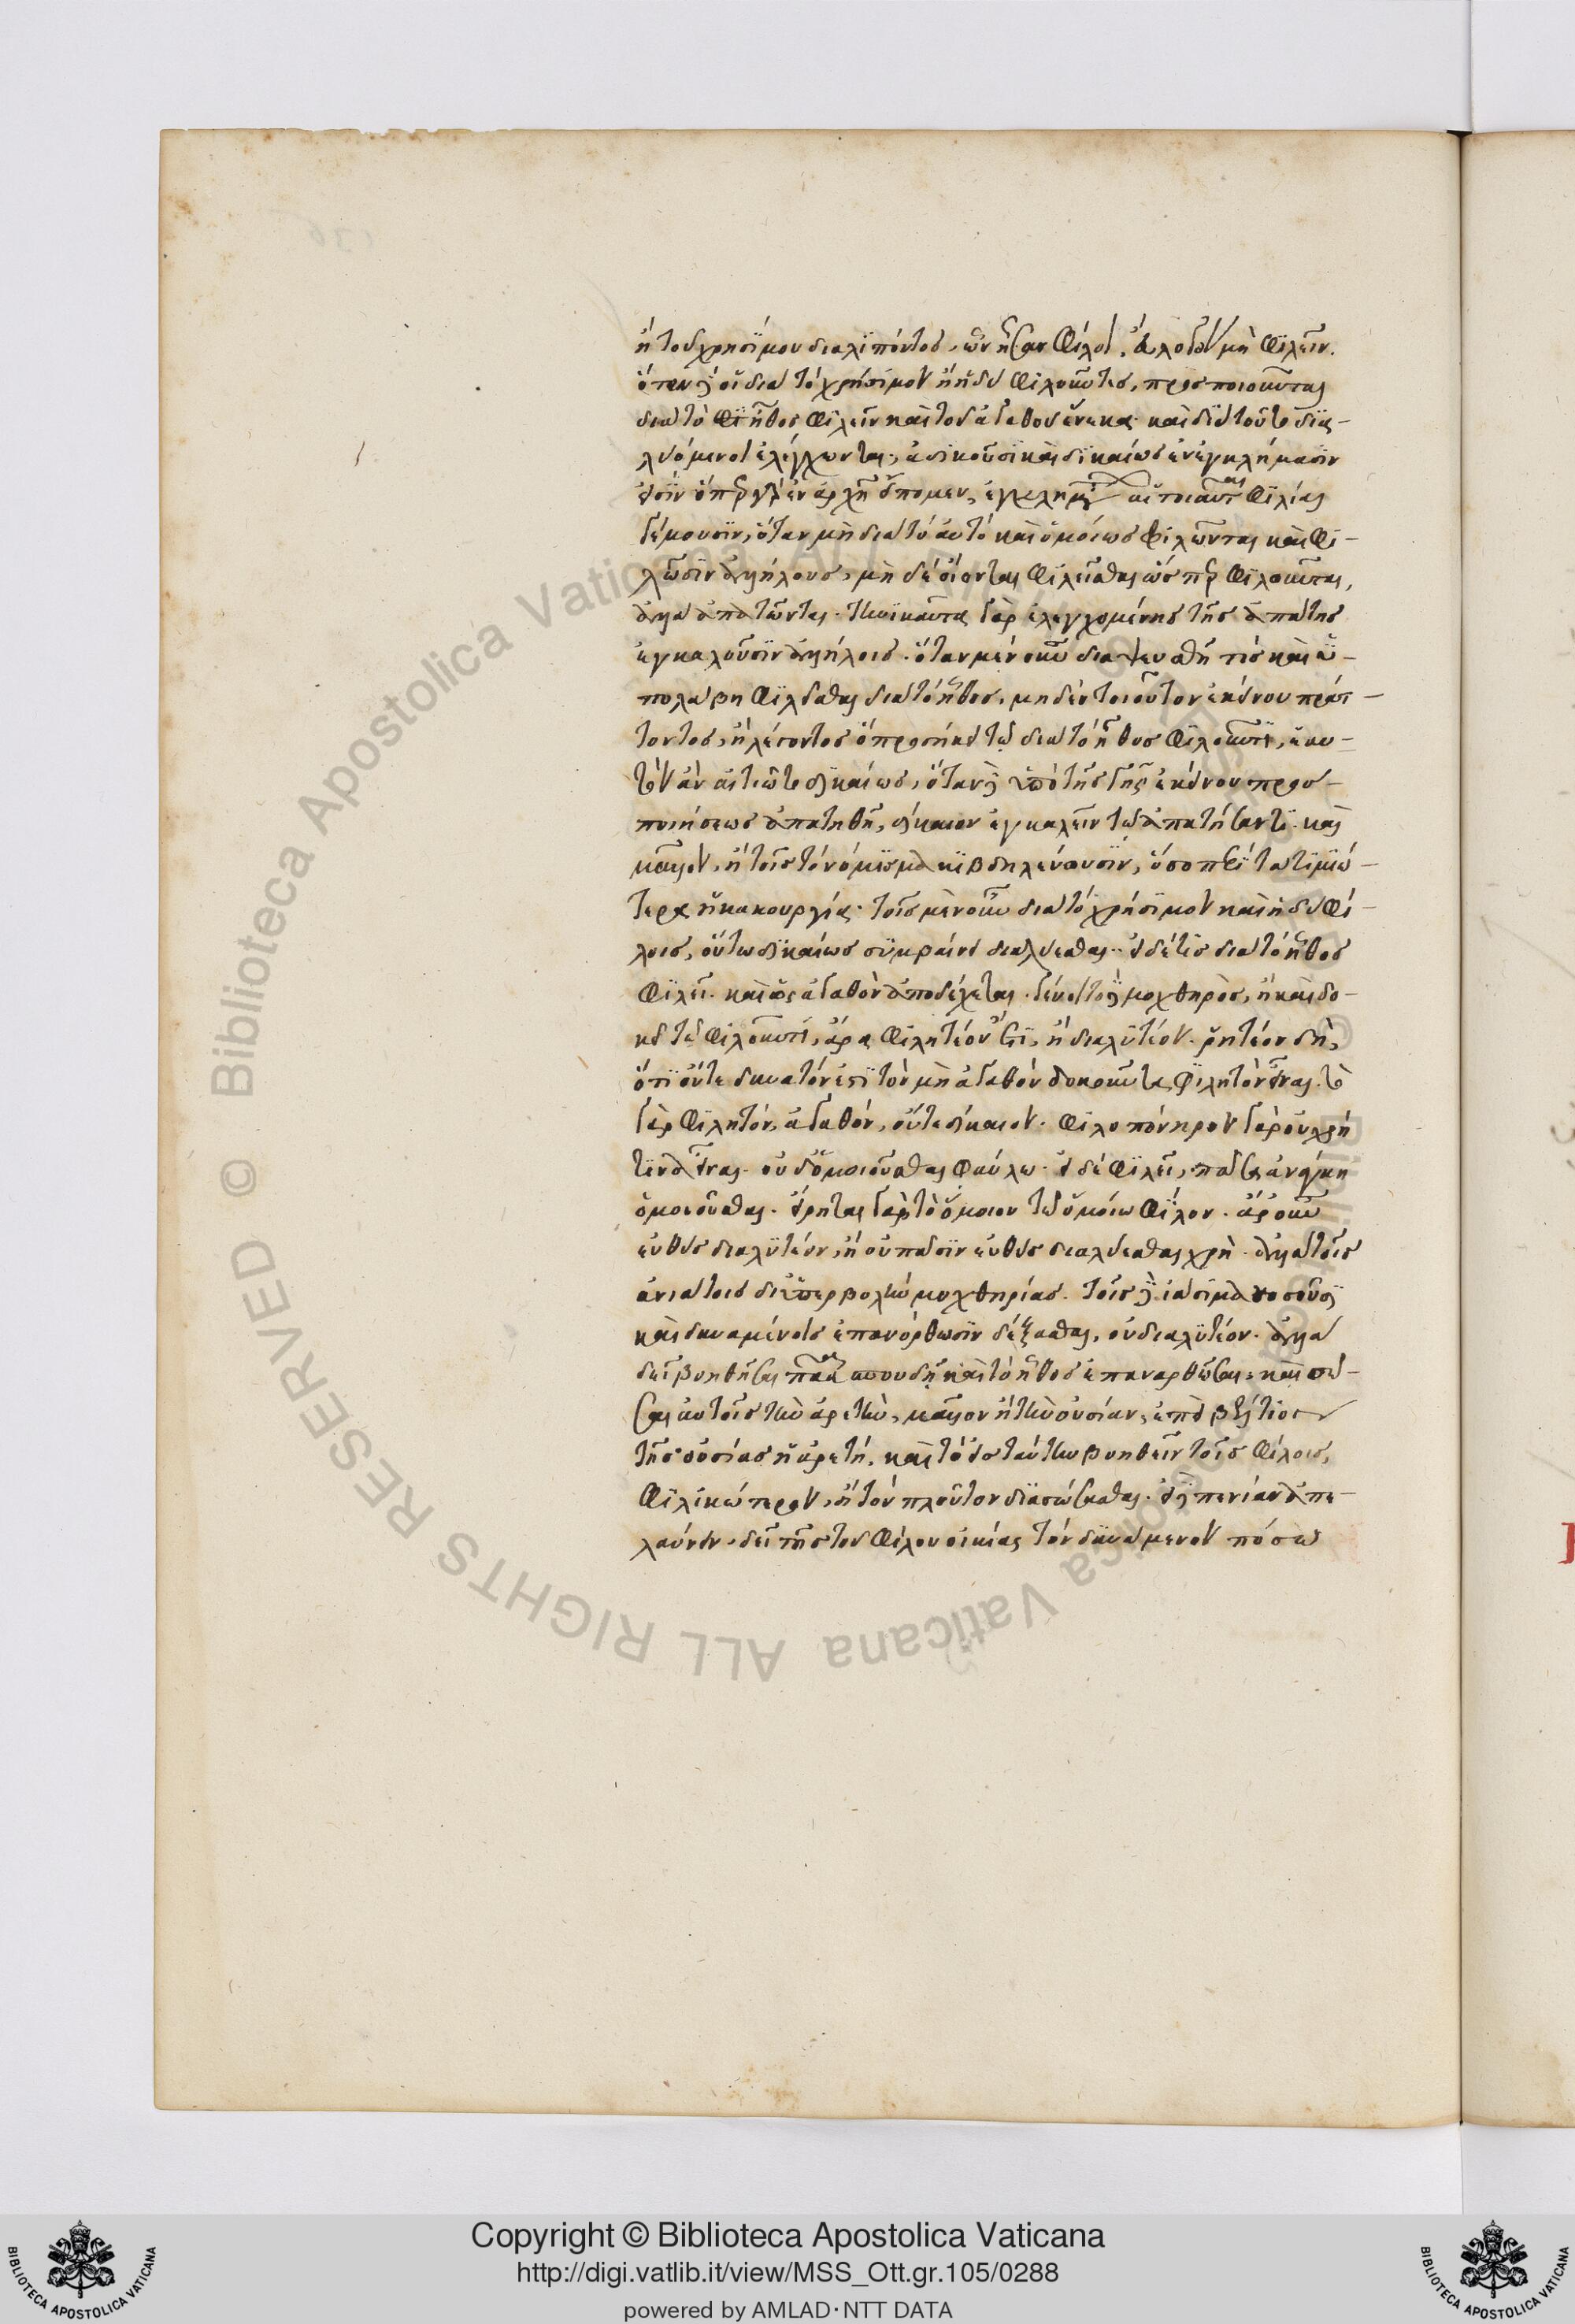 ἢ τοῦ χρησίμου διαλιπόντος, ὧν ἦσαν φίλοι, εὔλογον μὴ φιλεῖν.
ὅταν δὲ οἱ διὰ τὸ χρήσιμον ἢ ἡδὺ φιλοῦντες, προσποιοῦνται
διὰ τὸ ἦθος φιλεῖν καὶ τοῦ ἀγαθοῦ ἕνεκα· καὶ διὰ τοῦτο δια-
λυόμενοι ἐλέγχωνται, ἀδικοῦσι καὶ δικαίως ἐν ἐγκλήμασιν
εἰσὶν ὅπερ γὰρ ἐν ἀρχῇ εἴπομεν, ἐγκλημάτων αἱ τοιαῦται φιλίαι
γέμουσιν, ὅταν μὴ διὰ τὸ αὐτὸ καὶ ὁμοίως φιλῶνται καὶ φι-
λῶσιν ἀλλήλους, μὴ δὲ οἴονται φιλεῖσθαι ὥσπερ φιλοῦνται,
ἀλλὰ ἀπατῶνται. τηνικαῦτα γὰρ ἐλεγχομένης τῆς ἀπάτης
ἐγκαλοῦσιν ἀλλήλοις. ὅταν μὲν οὖν διαψευσθῇ τις καὶ ὑ-
πολάβῃ φιλεῖσθαι διὰ τὸ ἦθος, μηδὲν τοιοῦτον ἐκείνου πράτ-
τοντος, ἢ λέγοντος ὃ προσήκει τῷ διὰ τὸ ἦθος φιλοῦντι, ἑαυ-
τὸν ἂν αἰτιῷτο δικαίως, ὅταν δὲ ὑπὸ τῆς τῆς ἐκείνου προσ-
ποιήσεως ἀπατηθῇ, δίκαιον ἐγκαλεῖν τῷ ἀπατήσαντι. καὶ
μᾶλλον, ἢ τοῖς τὸ νόμισμα κιβδηλεύουσιν, ὅσο περὶ τὰ τιμιώ-
τερα ἡ κακουργία· τοῖς μὲν οὖν διὰ τὸ χρήσιμον καὶ ἡδὺ φί-
λοις, οὕτω δικαίως συμβαίνει διαλύεσθαι. εἰ δέ τις διὰ τὸ ἦθος
φιλεῖ. καὶ ὡς ἀγαθὸν ἀποδέχεται. γένοιτο δὲ μοχθηρὸς, ἢ καὶ δο-
κεῖ τῷ φιλοῦντι, ἆρα φιλητέον ἐστὶ, ἢ διαλυτέον. ῥητέον δὴ,
ὅτι οὔτε δυνατὸν ἐστὶ τὸν μὴ ἀγαθὸν δοκοῦντα φιλητὸν εἶναι. τὸ
γὰρ φιλητόν, ἀγαθόν, οὔτε δίκαιον. φιλοπόνηρον γὰρ οὐ χρή
τινα εἶναι. οὐδ' ὁμοιοῦσθαι φαύλω. εἰ δὲ φιλεῖ, πᾶσα ἀνάγκη
ὁμοιοῦσθαι. εἴρηται γὰρ τὸ ὅμοιον τῷ ὁμοίω φίλον. ἆρ' οὖν
εὐθὺς διαλυτέον, ἢ οὐ πᾶσιν εὐθὺς διαλύεσθαι χρή. ἀλλὰ τοῖς
ἀνιάτοις δι' ὑπερβολὴν μοχθηρίας. τοῖς δὲ ἰάσιμα νοσοῦσι
καὶ δυναμένοις ἐπανόρθωσιν δέξασθαι, οὐ διαλυτέον. ἀλλὰ
δεῖ βοηθῆσαι πάσῃ σπουδῇ καὶ τὸ ἦθος ἐπανορθῶσαι, καὶ σῶ-
σαι αὐτοῖς τὴν ἀρετὴν, μᾶλλον ἢ τὴν οὐσίαν, ἐπεὶ βέλτιον
τῆς οὐσίας ἡ ἀρετή. καὶ τὸ εἰς ταύτην βοηθεῖν τοῖς φίλοις,
φιλικώτερον, ἢ τὸν πλοῦτον διασώσασθαι. εἰ δὲ πενίαν ἀπε-
λαύνειν, δεῖ τῆς τοῦ φίλου οἰκίας τὸν δυνάμενον πόσω
Copyright © Biblioteca Apostolica Vaticana
http://digi.vatlib.it/view/MSS_Ott.gr.105/0288
powered by AMLAD·NTT DATA